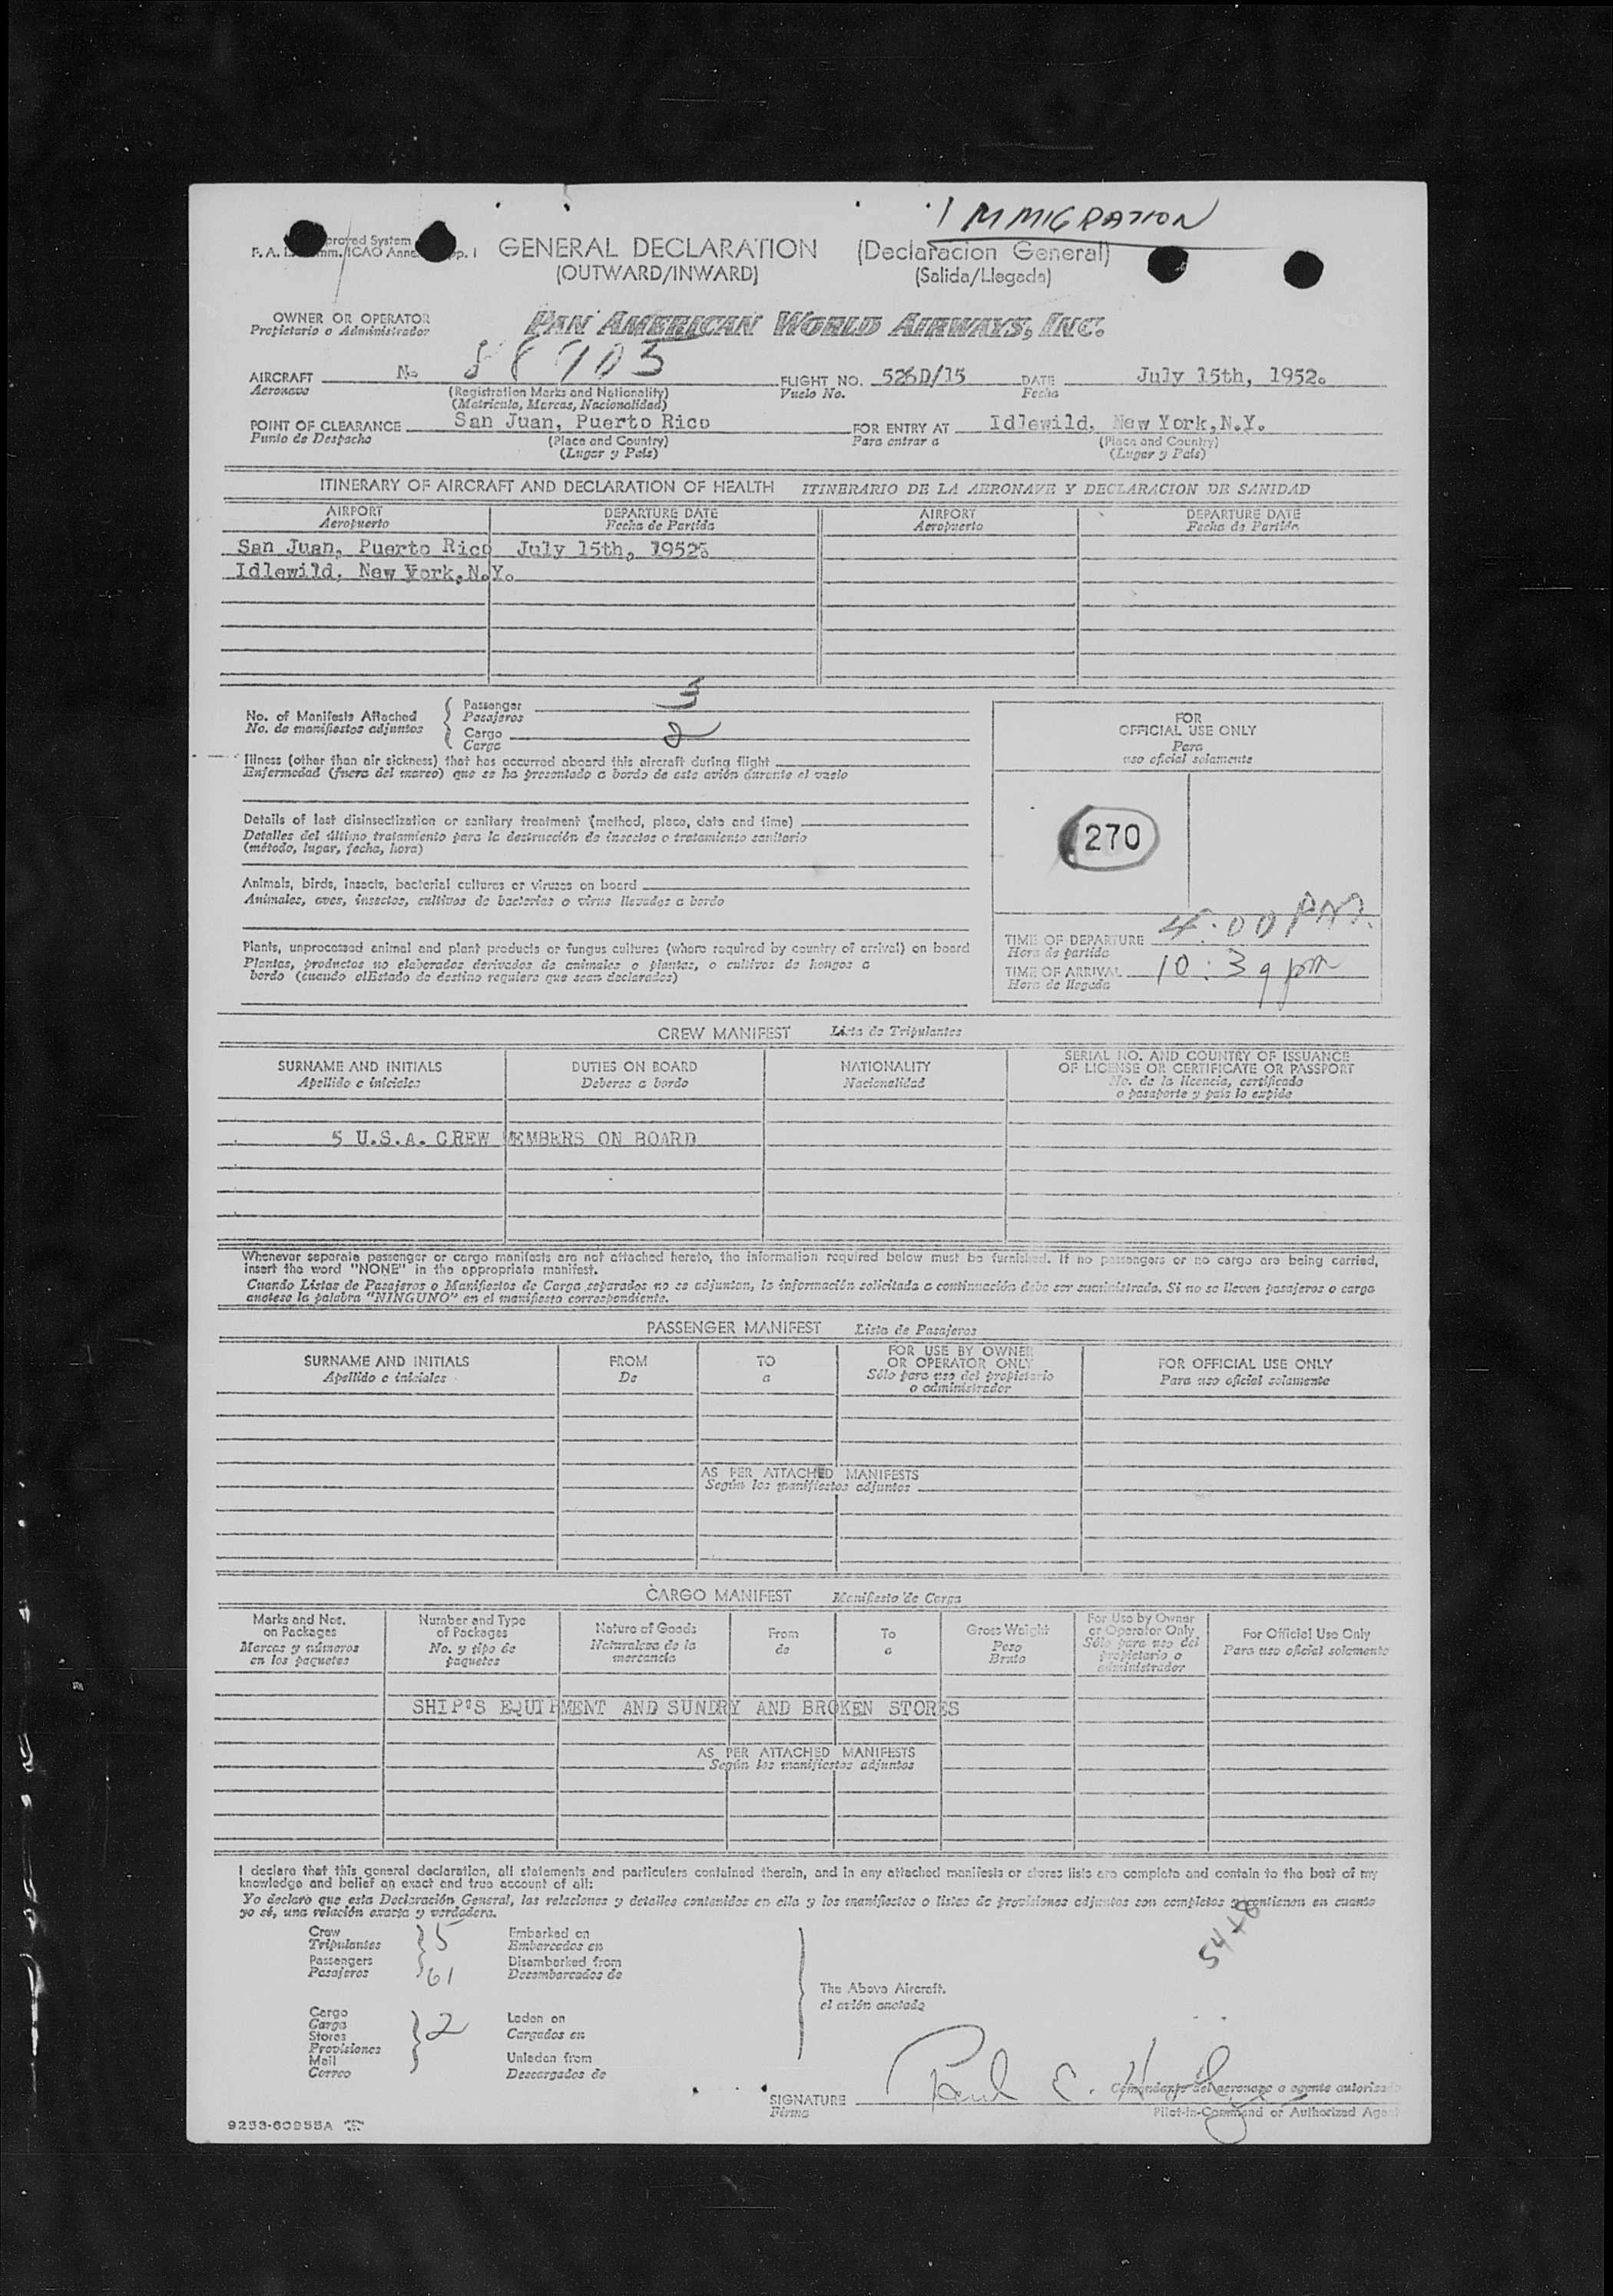 IMMIGRATION
GENERAL DECLARATION (Declaracion General)
(OUTWARD/INWARD) (Salida/Llegada)
OWNER OR OPERATOR
Propietario o Administrador
PAN AMERICAN WORLD AIRWAYS, INC.
AIRCRAFT No FLIGHT NO. 526D/15 DATE July 15th, 1952.
Aeronave (Registration Marks and Nationality) Vuelo No. Fecha
(Matricula, Marcas, Nacionalidad)
POINT OF CLEARANCE San Juan, Puerto Rico FOR ENTRY AT Idlewild, New York,N.Y.
Punto de Despacho (Place and Country) Para entrar a (Place and Country)
(Lugar y País) (Lugar y País)
ITINERARY OF AIRCRAFT AND DECLARATION OF HEALTH ITINERARIO DE LA AERONAVE Y DECLARACION DE SANIDAD
AIRPORT DEPARTURE DATE AIRPORT DEPARTURE DATE
Aeropuerto Fecha de Partida Aeropuerto Fecha de Partida
San Juan, Puerto Rico July 15th, 1952
Idlewild, New York,N.Y.
No. of Manifests Attached
No. de manifiestos adjuntos
Passenger 3
Pasajeros
Cargo 2
Carga
FOR
OFFICIAL USE ONLY
Para
uso oficial solamente
Illness (other than air sickness) that has occurred aboard this aircraft during flight
Enfermedad (fuera del mareo) que se ha presentado a bordo de este avión durante el vuelo
Details of last disinsectization or sanitary treatment (method, place, date and time)
Detalles del último tratamiento para la destrucción de insectos o tratamiento sanitario
(método, lugar, fecha, hora)
270
Animals, birds, insects, bacterial cultures or viruses on board
Animales, aves, insectos, cultivos de bacterias o virus llevados a bordo
Plants, unprocessed animal and plant products or fungus cultures (where required by country of arrival) on board
Plantas, productos no elaborados derivados de animales o plantas, o cultivos de hongos a
bordo (cuando elEstado de destino requiere que sean declarados)
TIME OF DEPARTURE 4:00 PM.
Hora de partida
TIME OF ARRIVAL 10:39 pm
Hora de llegada
CREW MANIFEST Lista de Tripulantes
SURNAME AND INITIALS DUTIES ON BOARD NATIONALITY SERIAL NO. AND COUNTRY OF ISSUANCE
OF LICENSE OR CERTIFICATE OR PASSPORT
Apellido e iniciales Deberes a bordo Nacionalidad No. de la licencia, certificado
o pasaporte y país lo expide
5 U.S.A. CREW MEMBERS ON BOARD
Whenever separate passenger or cargo manifests are not attached hereto, the information required below must be furnished. If no passengers or no cargo are being carried,
insert the word "NONE" in the appropriate manifest.
Cuando Listas de Pasajeros o Manifiestos de Carga separados no se adjuntan, la información solicitada a continuación debe ser suministrada. Si no se lleven pasajeros o carga
anotese la palabra "NINGUNO" en el manifiesto correspondiente.
PASSENGER MANIFEST Lista de Pasajeros
SURNAME AND INITIALS FROM TO FOR USE BY OWNER
OR OPERATOR ONLY FOR OFFICIAL USE ONLY
Apellido e iniciales De a Sólo para uso del propietario
o administrador Para uso oficial solamente
AS PER ATTACHED MANIFESTS
Según los manifiestos adjuntos
CARGO MANIFEST Manifiesto de Carga
Marks and Nos.
on Packages
Marcas y números
en los paquetes
Number and Type
of Packages
No. y tipo de
paquetes
Nature of Goods
Naturaleza de la
mercancía
From
de
To
a
Gross Weight
Peso
Bruto
For Use by Owner
or Operator Only
Sólo para uso del
propietario o
administrador
For Official Use Only
Para uso oficial solamente
SHIP'S EQUIPMENT AND SUNDRY AND BROKEN STORES
AS PER ATTACHED MANIFESTS
Según los manifiestos adjuntos
I declare that this general declaration, all statements and particulars contained therein, and in any attached manifests or stores lists are complete and contain to the best of my
knowledge and belief an exact and true account of all:
Yo declaro que esta Declaración General, las relaciones y detalles contenidos en ella y los manifiestos o listas de provisiones adjuntos son completos y contienen en cuanto
yo sé, una relación exacta y verdadera.
54+8
Crew 5 Embarked on
Tripulantes Embarcados en
Passengers 61 Disembarked from
Pasajeros Desembarcados de
The Above Aircraft.
el avión anotado
Cargo
Carga
Stores
Provisiones
Mail
Correo
2
Laden on
Cargados en
Unladen from
Descargados de
SIGNATURE Paul E.
Firma
Comandante del aeronave o agente autorizado
Pilot-in-Command or Authorized Agent